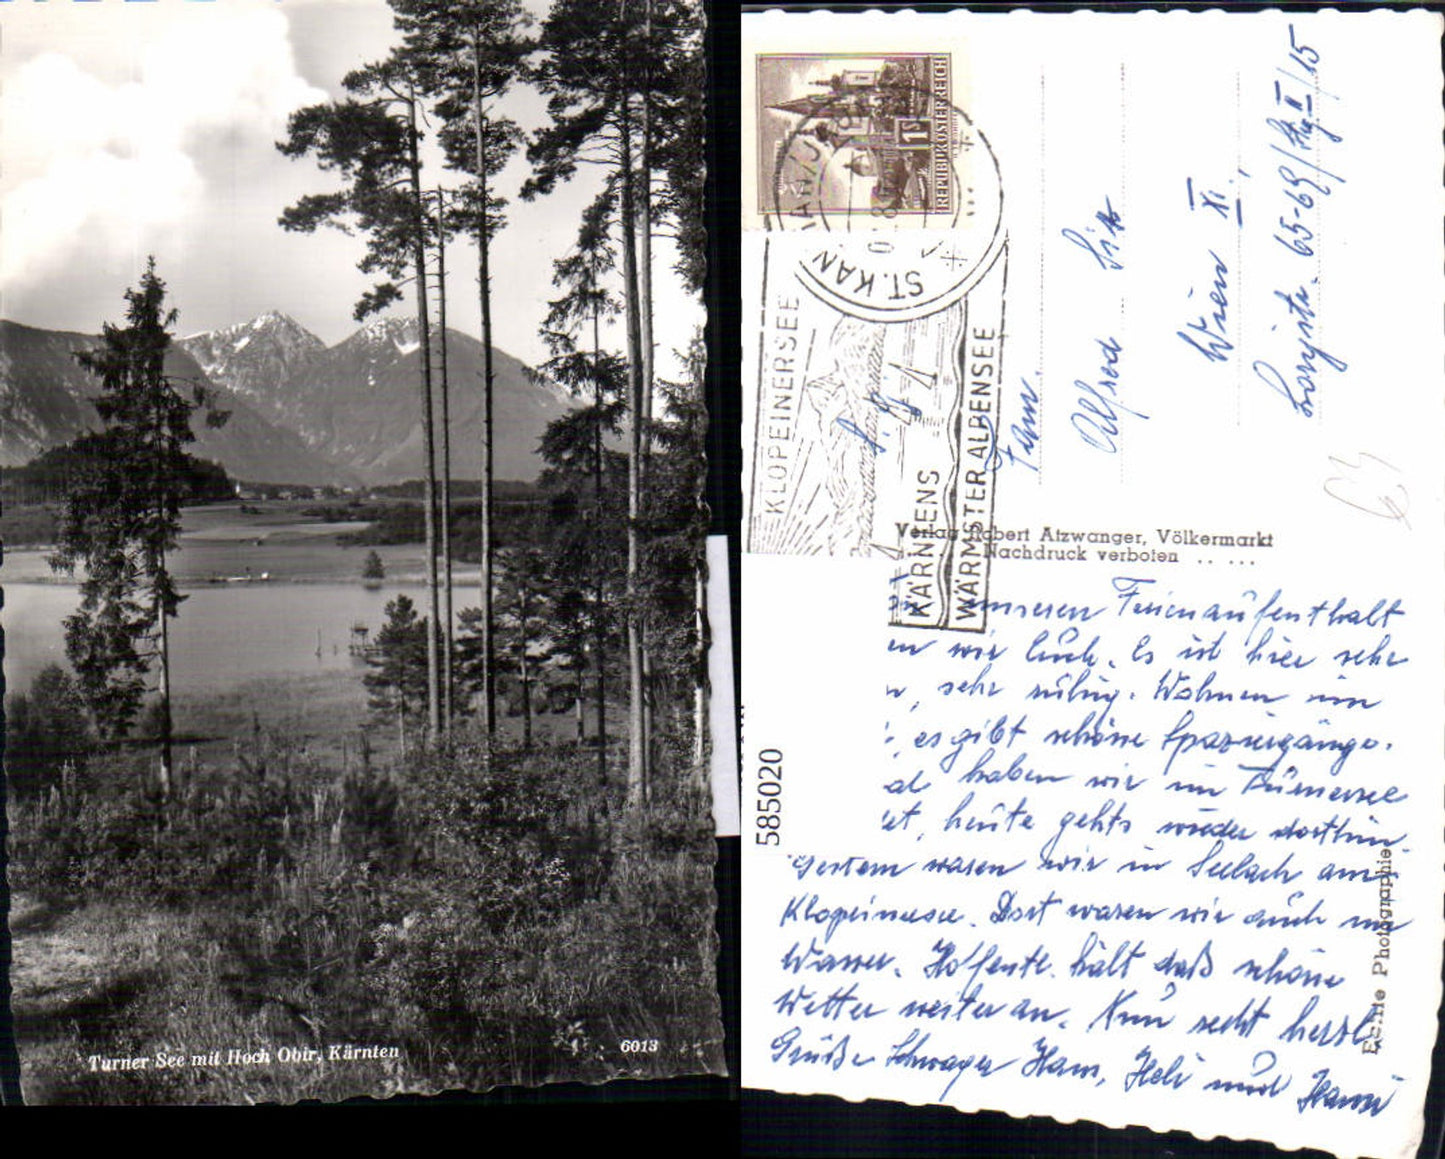 Turner See mit Hoch Obir, Kärnten
6013
585020
REPUBLIK ÖSTERREICH
1S
ST. KAN
KLOPEINERSEE
KÄRNTENS
WÄRMSTER ALPENSEE
Fam.
Alfred
Wien XI.,
65-69/Stg II/15
Verlag Robert Atzwanger, Völkermarkt
Nachdruck verboten
Echte Photographie
unseren Ferienaufenthalt
en wir Euch. Es ist hier sehr
sehr ruhig. Wohnen im
, es gibt schöne Spaziergänge.
haben wir im Turnersee
et, heute gehts wieder dorthin.
Gestern waren wir in Seelach am
Klopeinersee. Dort waren wir auch im
Wasser. Hoffentl. hält daß schöne
Wetter weiter an. Nun recht herzl.
Grüße Schwager Hans, Heli und Hansi